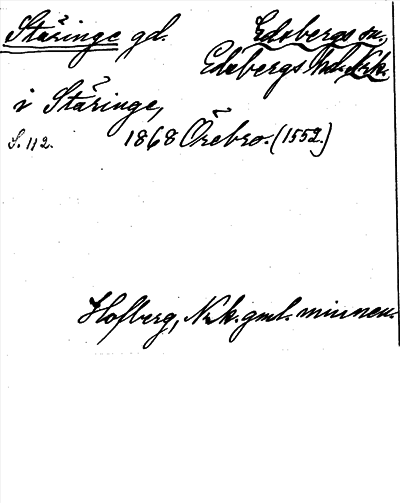 Stäringe gd. Edsbergs sn.,
Edsbergs hd. Nrk.
i Stäringe,
S. 112. 1868 Örebro. (1552.)
Hofberg, Nrk. gml. minnen.